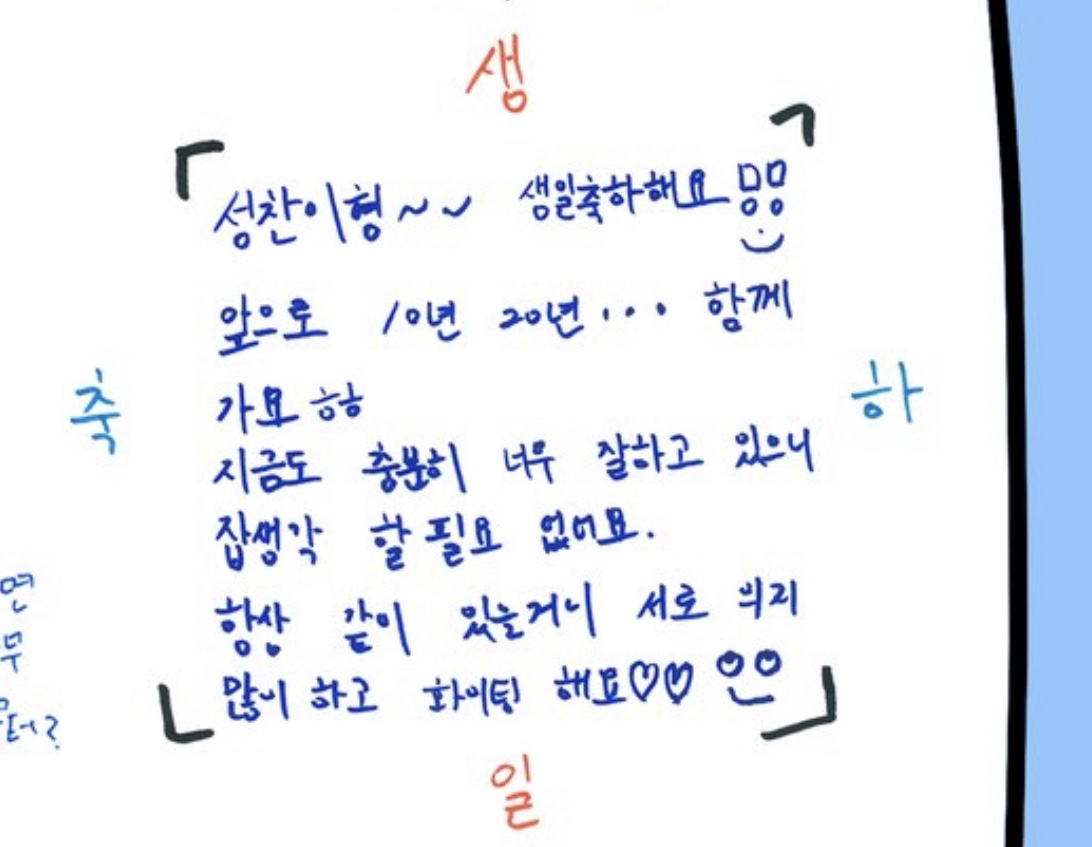 생
성찬이형~~ 생일축하해요
앞으로 10년 20년... 함께
축
하
가요 ㅎㅎ
지금도 충분히 너무 잘하고 있으니
잡생각 할 필요 없어요.
항상 같이 있을거니 서로 의지
많이 하고 화이팅 해요♡♡
일
면
무
터?